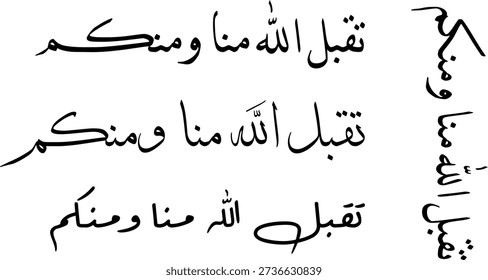 تقبل الله منا ومنكم
تقبل الله منا ومنكم
تقبل الله منا ومنكم
تقبل الله منا ومنكم
shutterstock.com · 2736630839